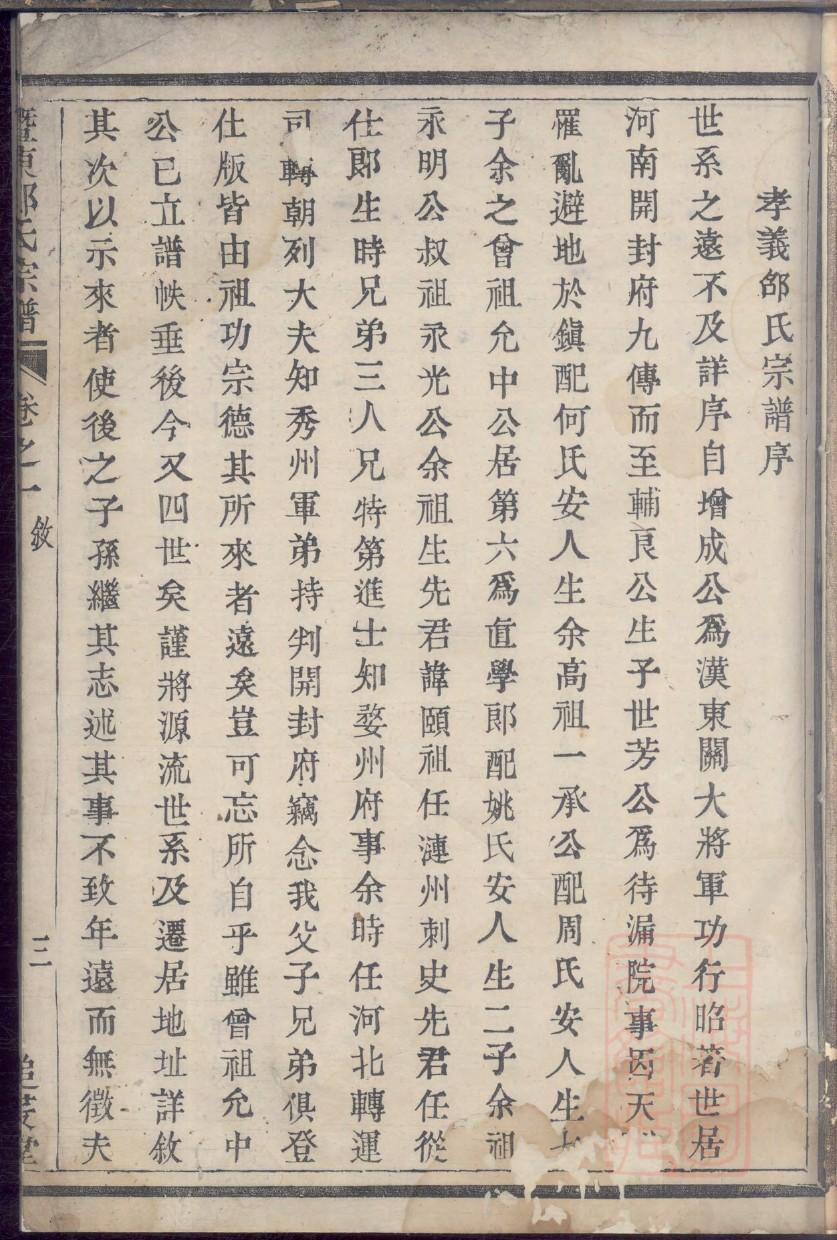 孝義邵氏宗譜序
世系之遠不及詳序自增成公爲漢東關大將軍功行昭著世居
河南開封府九傳而至輔良公生子世芳公爲待漏院事因天
罹亂避地於鎭配何氏安人生余高祖一承公配周氏安人生七
子余之曾祖允中公居第六爲直學郎配姚氏安人生二子余祖
永明公叔祖永光公余祖生先君諱頤祖任漣州刺史先君任從
仕郎生時兄弟三人兄特第進士知婺州府事余時任河北轉運
司轉朝列大夫知秀州軍弟持判開封府竊念我父子兄弟俱登
仕版皆由祖功宗德其所來者遠矣豈可忘所自乎雖曾祖允中
公已立譜帙垂後今又四世矣謹將源流世系及遷居地址詳敘
其次以示來者使後之子孫繼其志述其事不致年遠而無徵夫
暨東邵氏宗譜 卷之一 敘 三